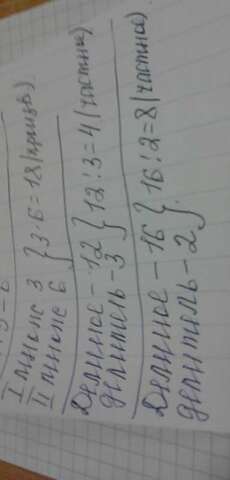 I множ 3 } 3·6=18 (произв)
II множ 6
Делимое – 12 } 12:3=4 (частное)
делитель – 3
Делимое – 16 } 16:2=8 (частное)
делитель – 2